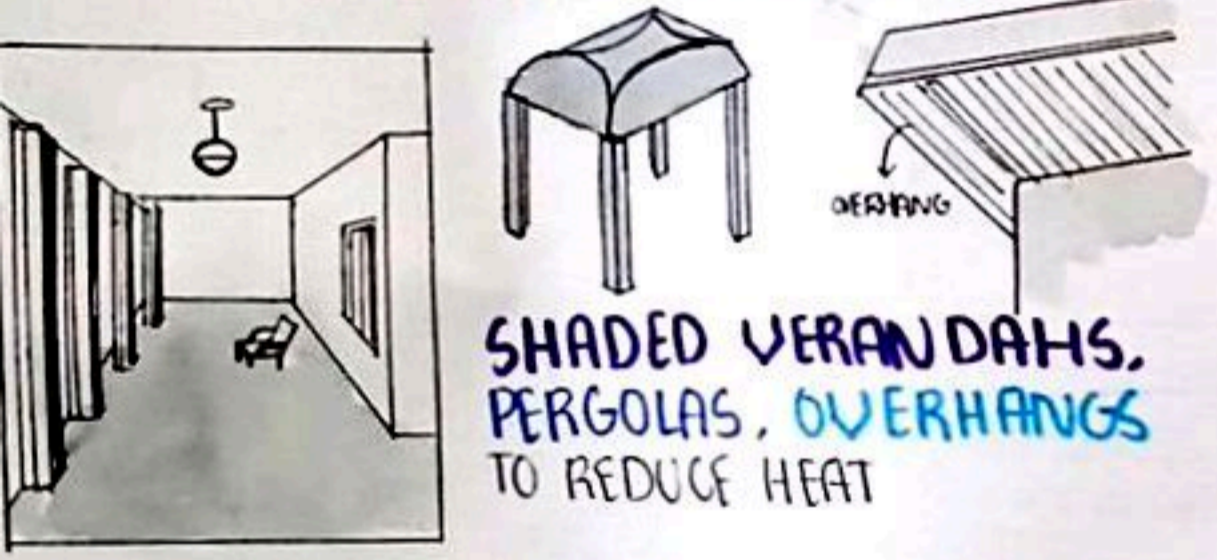 OVERHANG
SHADED VERANDAHS,
PERGOLAS, OVERHANGS
TO REDUCE HEAT